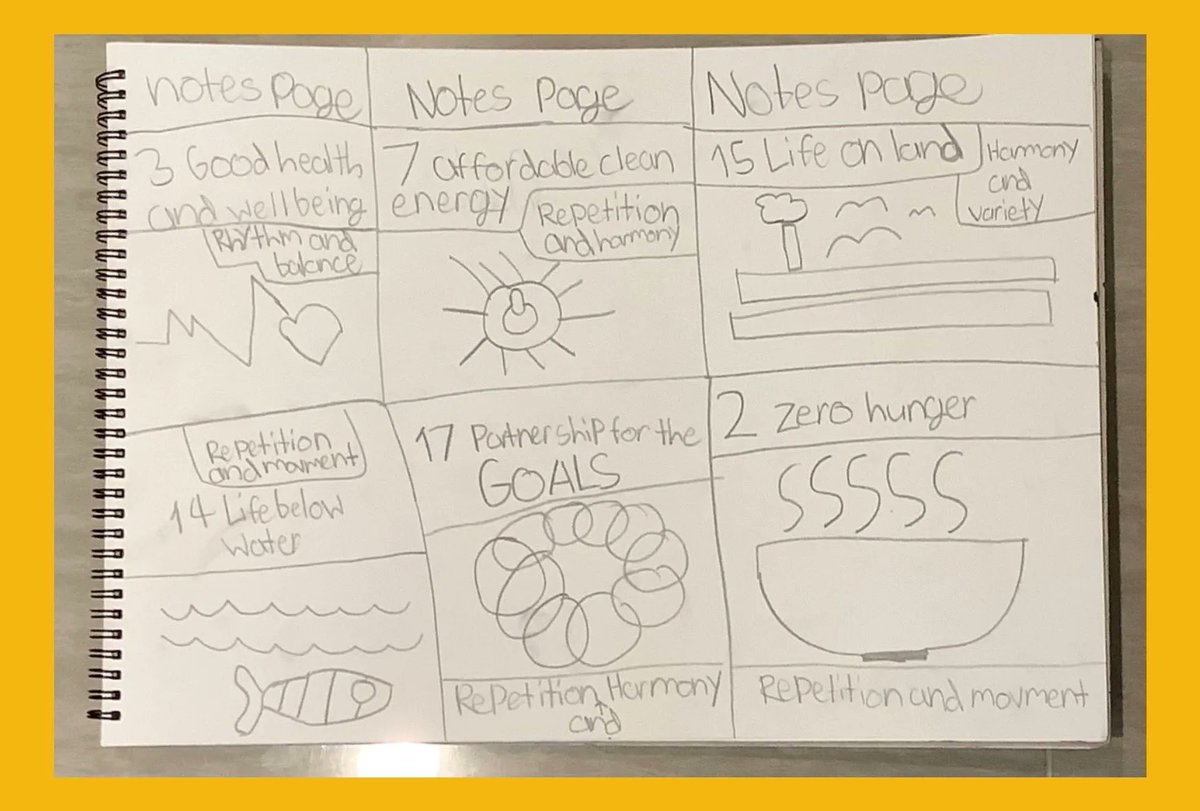 notes Page
3 Good health
and wellbeing
Rhythm and
balance
Notes Page
7 affordable clean
energy
Repetition
and harmony
Notes page
15 Life on land
Harmony
and
variety
Repetition
and mavment
14 Life below
water
17 Partnership for the
GOALS
Repetition, Harmony
and
2 zero hunger
Repetition and movment